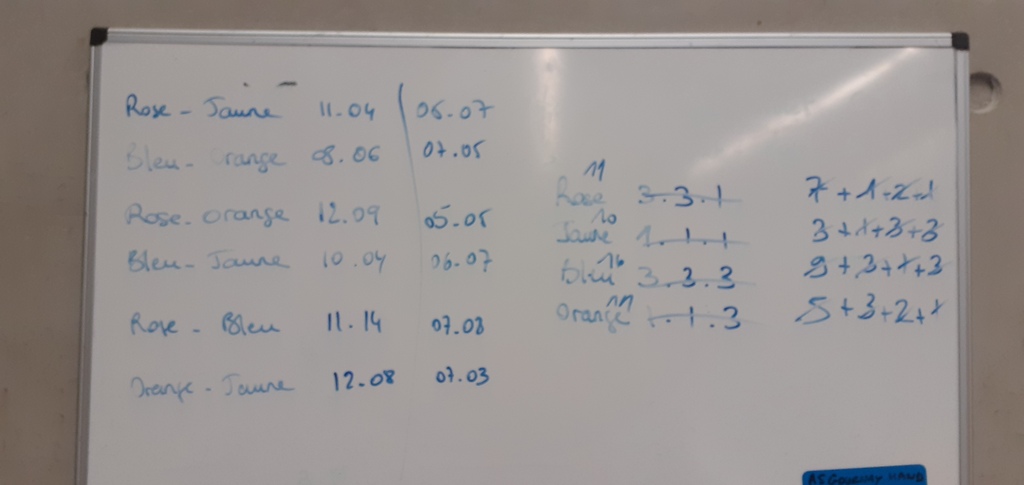 Rose - Jaune 11.04 06.07
Bleu - Orange 08.06 07.05
Rose - Orange 12.09 05.05
Bleu - Jaune 10.04 06.07
Rose - Bleu 11.14 07.08
Orange - Jaune 12.08 07.03
11
Rose 3.3.1 7+1+2+1
10
Jaune 1.1.1 3+1+3+3
16
Bleu 3.3.3 9+3+1+3
11
Orange 1.1.3 5+3+2+1
HAND